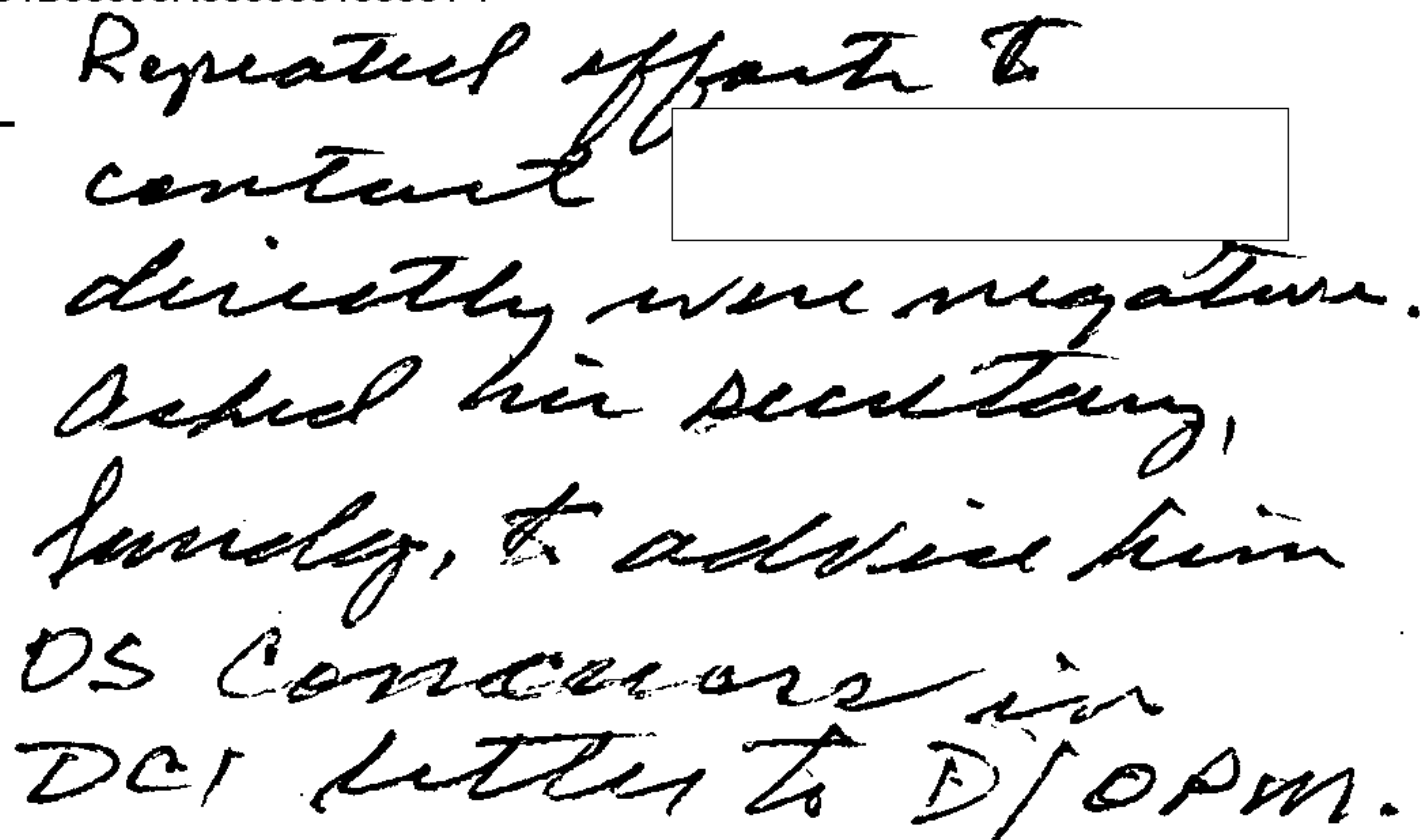 Repeated efforts to
contact
directly were negative.
Asked his secretary,
Sundy, to advise him
OS Concurs in
DCI letter to D/OPM.